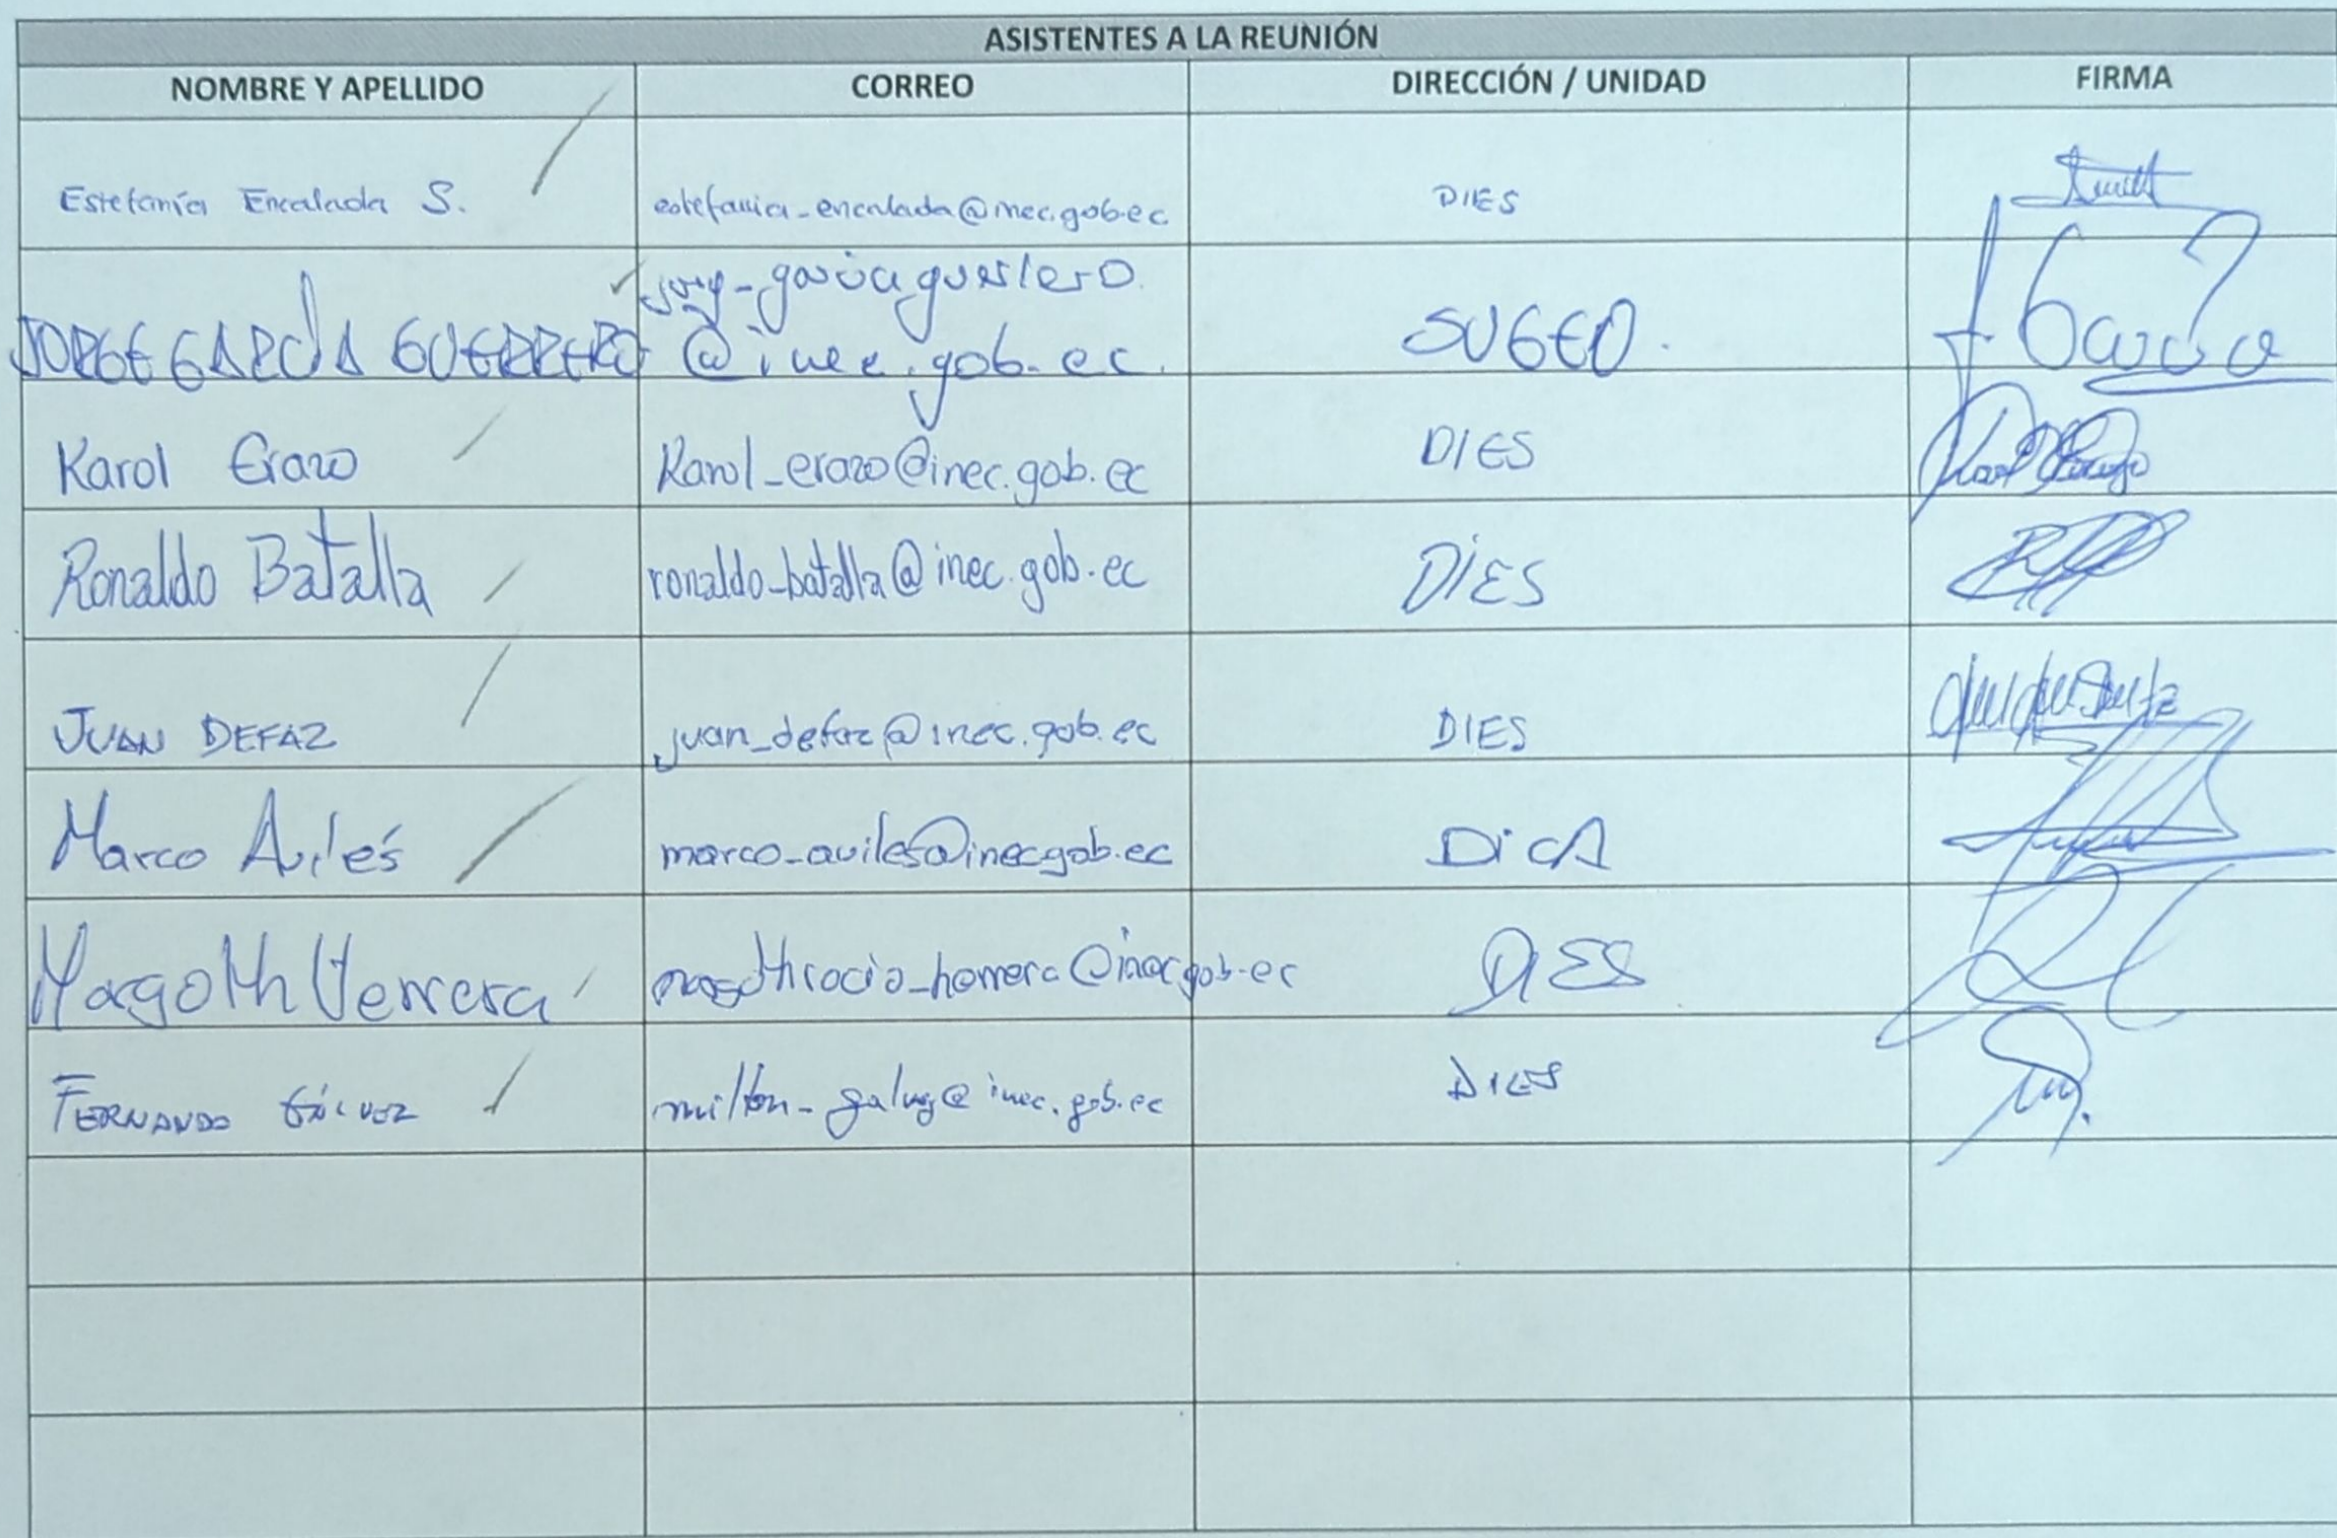 ASISTENTES A LA REUNIÓN
NOMBRE Y APELLIDO CORREO DIRECCIÓN / UNIDAD FIRMA
Estefanía Encalada S. estefania_encalada@inec.gob.ec DIES
JORGE GARCÍA GUERRERO SUGEO.
@inec.gob.ec.
Karol Erazo Karol_erazo@inec.gob.ec DIES
Ronaldo Batalla ronaldo_batalla@inec.gob.ec DIES
JUAN DEFAZ juan_defaz@inec.gob.ec DIES
Marco Avilés marco_aviles@inec.gob.ec DICA
Margoth Herrera DIES
FERNANDO GÁLVEZ milton_galvez@inec.gob.ec DIES